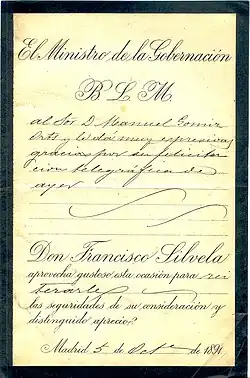 El Ministro de la Gobernación
B. L. M.
al Sor. D. Manuel Gomiz
Orts y le dá muy expresivas
gracias por su felicita-
cion telegráfica de
ayer
Don Francisco Silvela
aprovecha gustoso esta ocasión para rei
terarle
las seguridades de su consideración y
distinguido aprecio.
Madrid 5 de Oct.e de 1891